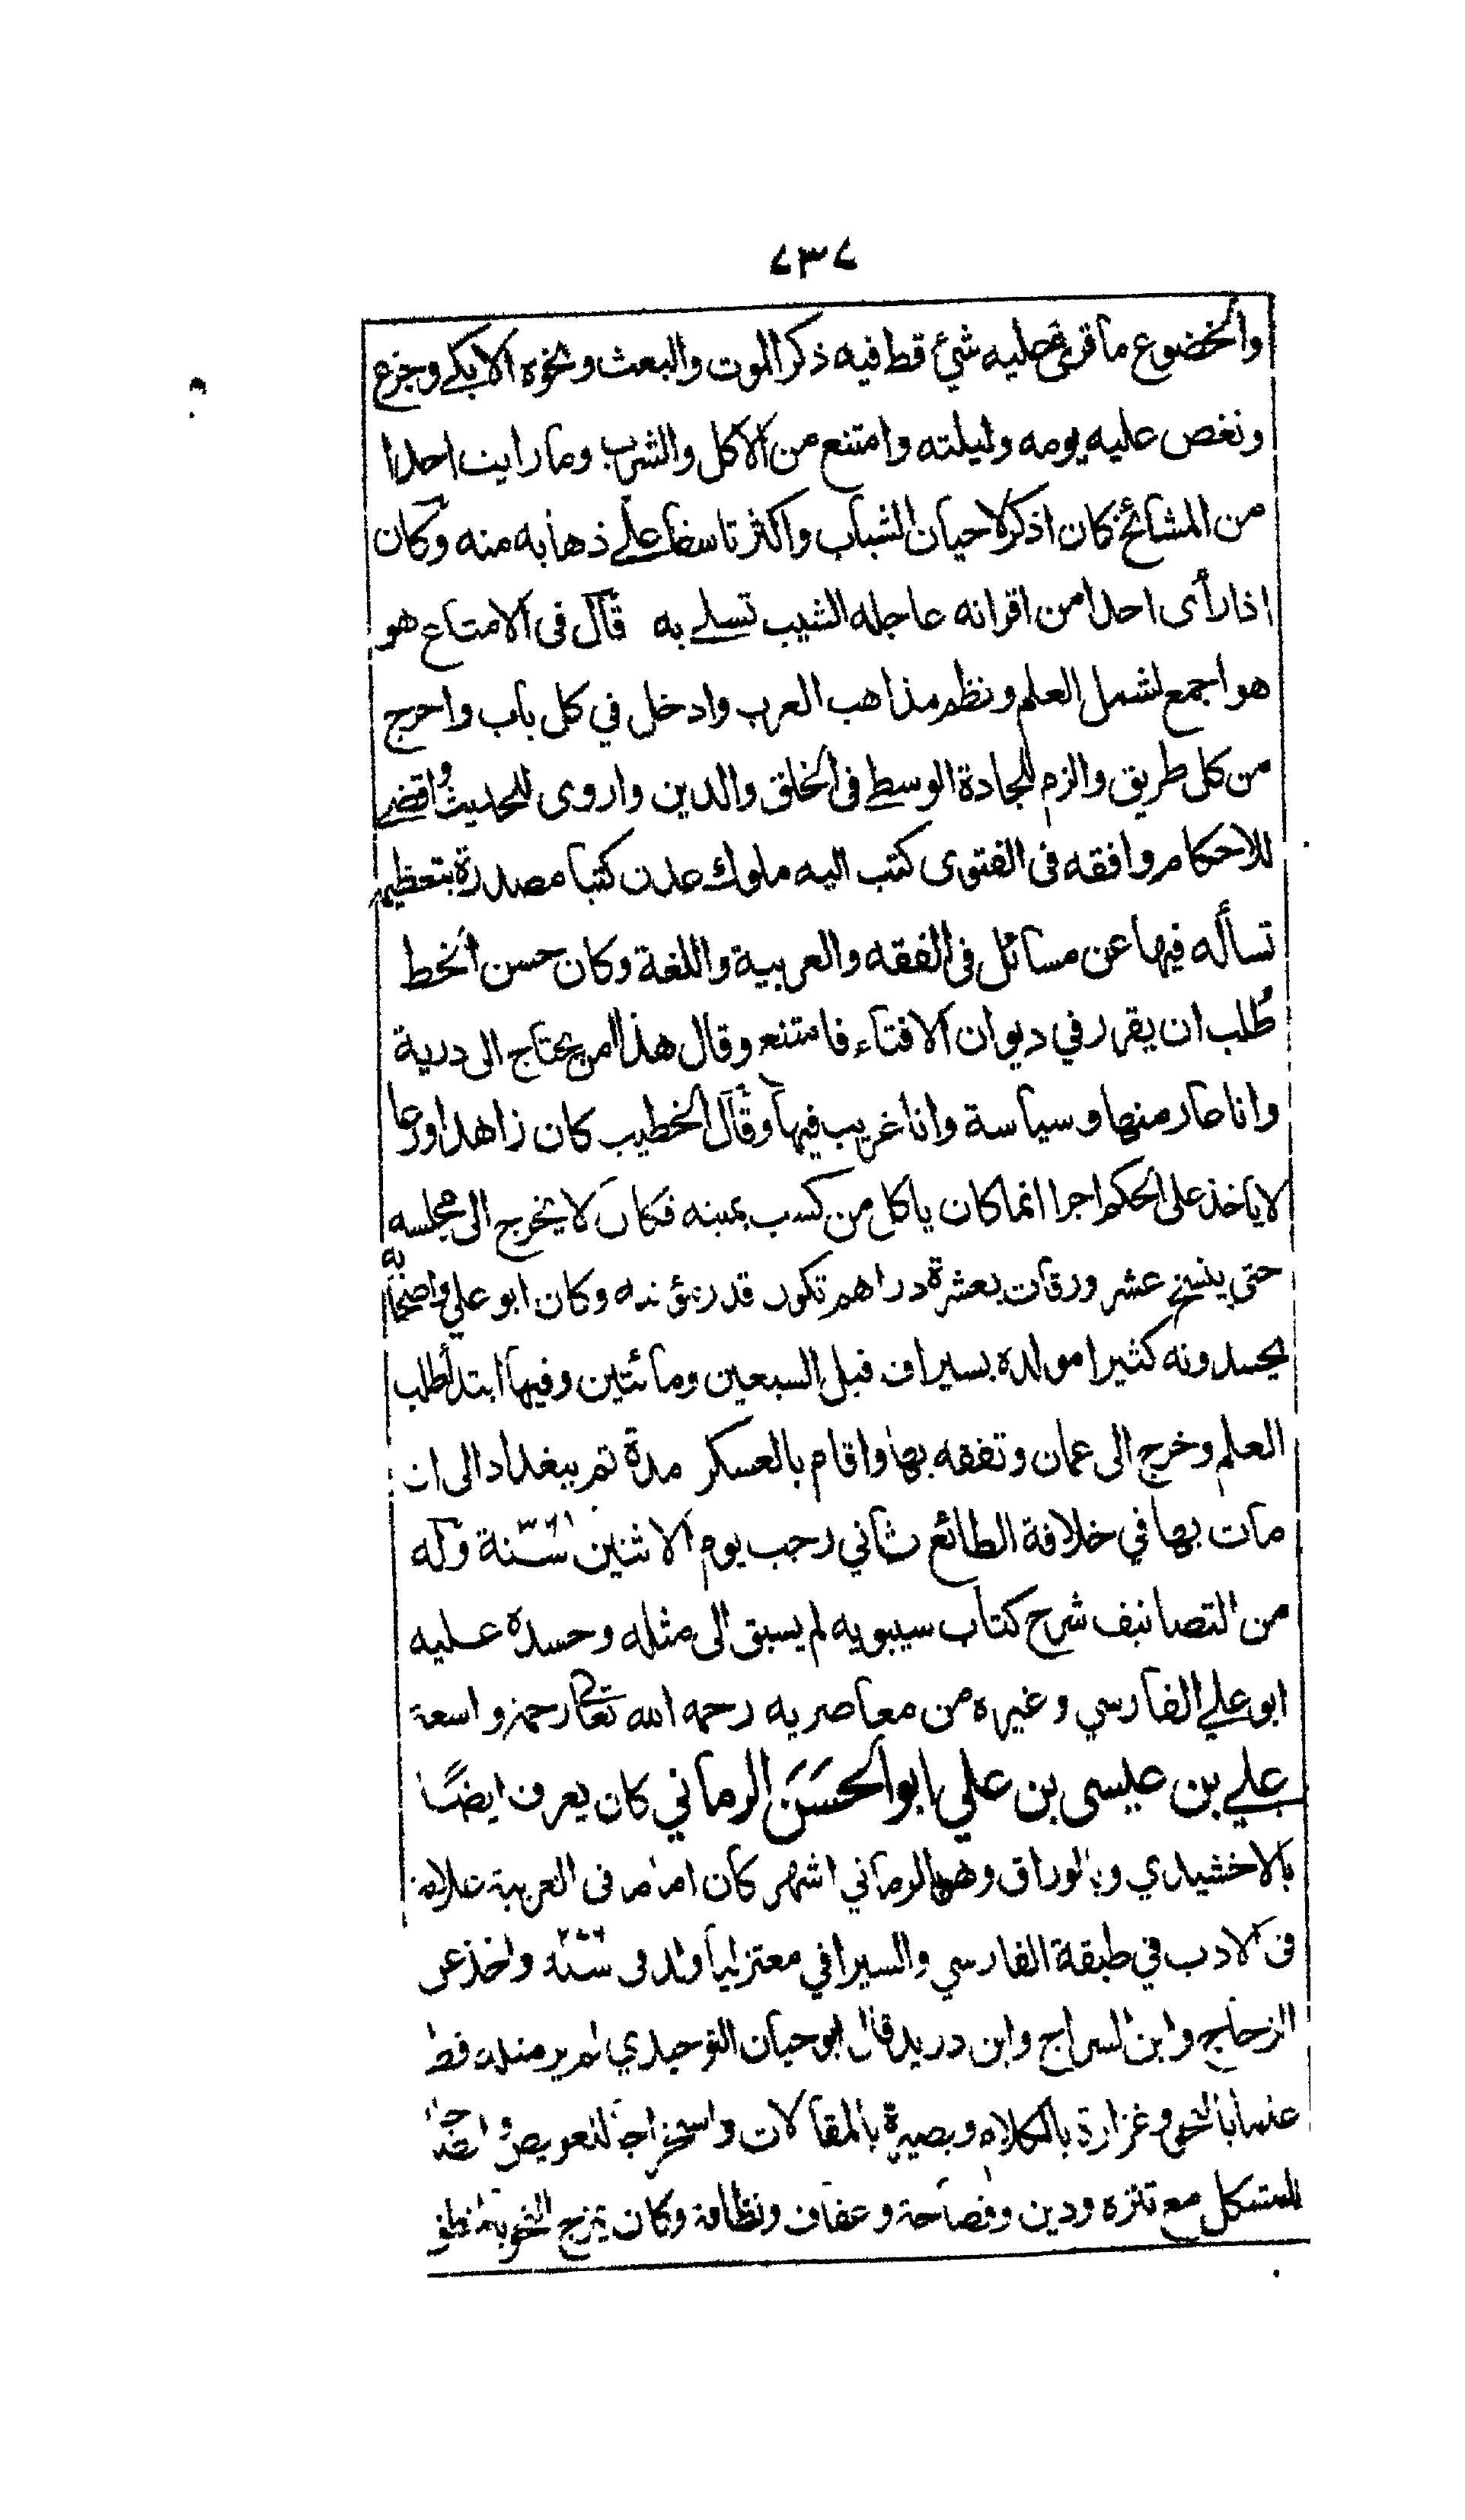 ٧٣٧
والخضوع ما قرئ عليه شيئ قط فيه ذكر الموت والبعث ونحوه الا بكى وجزع
ونغص عليه يومه وليلته وامتنع من الاكل والشرب وما رايت احدا
من المشائخ كان اذكر لاحيان الشباب واكثر تاسفا على ذهابه منه وكان
اذا رأى احدا من اقرانه عاجله الشيب تسلى به قال فى الامتاع هو
هو اجمع لشمل العلم ونظم مذاهب العرب وادخل في كل باب واخرج
من كل طريق والزم للجادة الوسطى فى الخلق والدين واروى للحديث واقضى
للاحكام وافقه فى الفتوى كتب اليه ملوك عدن كتبا مصدرة بتعظيمه
تسأله فيها عن مسائل فى الفقه والعربية واللغة وكان حسن الخط
طُلب ان يقرر في ديوان الافتاء فامتنع وقال هذا امر يحتاج الى دربة
وانا عار منها وسياسة وانا غريب فيها وقال الخطيب كان زاهدا ورعا
لا ياخذ على الحكم اجرا انما كان ياكل من كسب يمينه فكان لا يخرج الى مجلسه
حتى ينسخ عشر ورقات بعشرة دراهم تكون قدر مؤنته وكان ابو علي واصحابه
يحسدونه كثيرا مولده بسيراف قبل السبعين ومائتين وفيها ابتدأ طلب
العلم وخرج الى عمان وتفقه بها واقام بالعسكر مدة ثم ببغداد الى ان
مات بها في خلافة الطائع ثاني رجب يوم الاثنين سنة وله
من التصانيف شرح كتاب سيبويه لم يسبق الى مثله وحسده عليه
ابو علي الفارسي وغيره من معاصريه رحمه الله تعالى رحمة واسعة
علي بن عيسى بن علي ابو الحَسَن الرماني كان يعرف ايضًا
بالاخشيدي وبالوراق وهو بالرماني اشهر كان اماما فى العربية علامة
فى الادب في طبقة الفارسي والسيرافي معتزليا ولد فى سنة ٢٧٦ واخذ عن
الزجاج وابن السراج وابن دريد قال ابو حيان التوحيدي لم ير مثله قط
علما بالنحو وغزارة بالكلام وبصيرة بالمقالات واستخراجا للعويص وايضاحا
للمشكل مع تنزه ودين وفصاحة وعفاف ونظافة وكان يمزج النحو بالمنطق